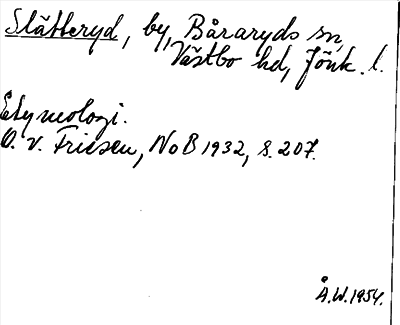 Slätteryd, by, Båraryds sn,
Västbo hd, Jönk. l.
Etymologi.
O. v. Friesen, NoB 1932, s. 207.
Å.W. 1954.